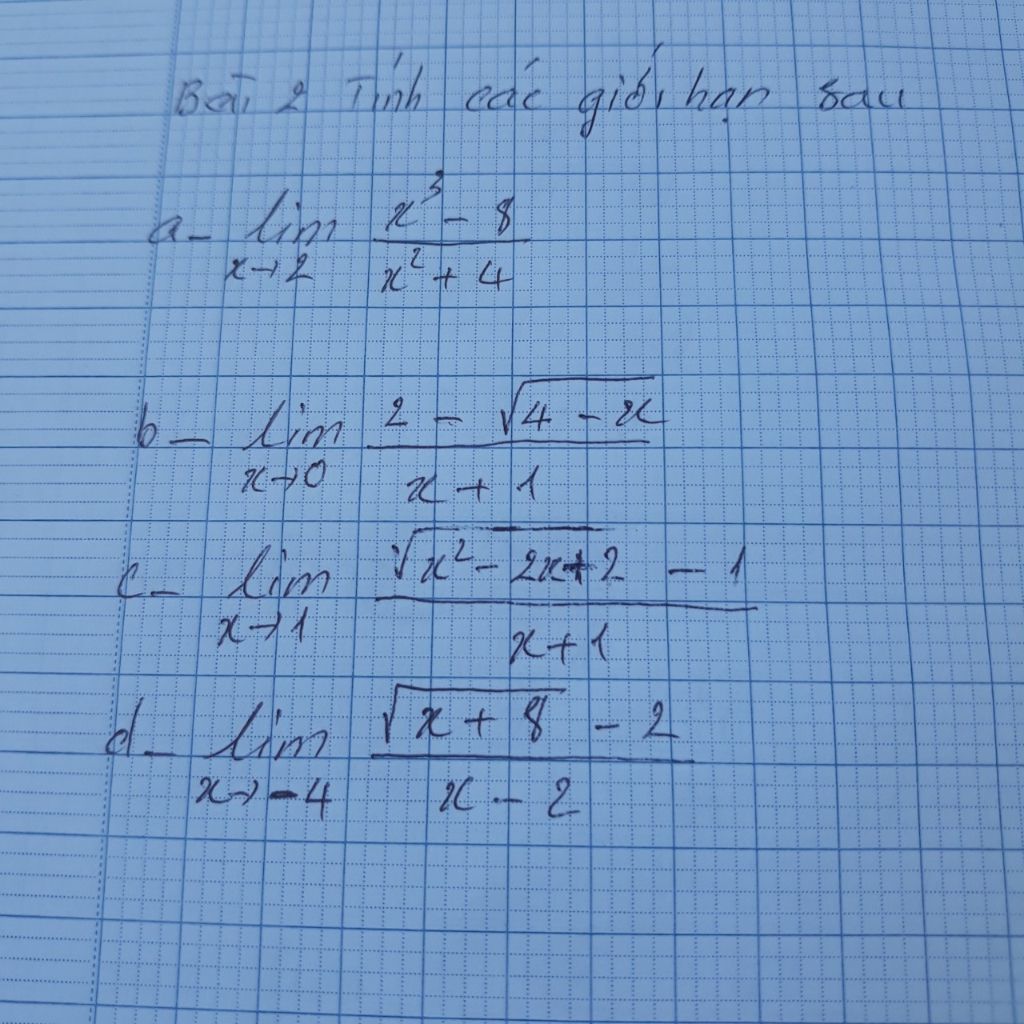 Bài 2 Tính các giới hạn sau
a- lim x→2 (x³ - 8)/(x² + 4)
b- lim x→0 (2 - √(4 - x))/(x + 1)
c- lim x→1 (√(x² - 2x + 2) - 1)/(x + 1)
d- lim x→-4 (√(x + 8) - 2)/(x - 2)